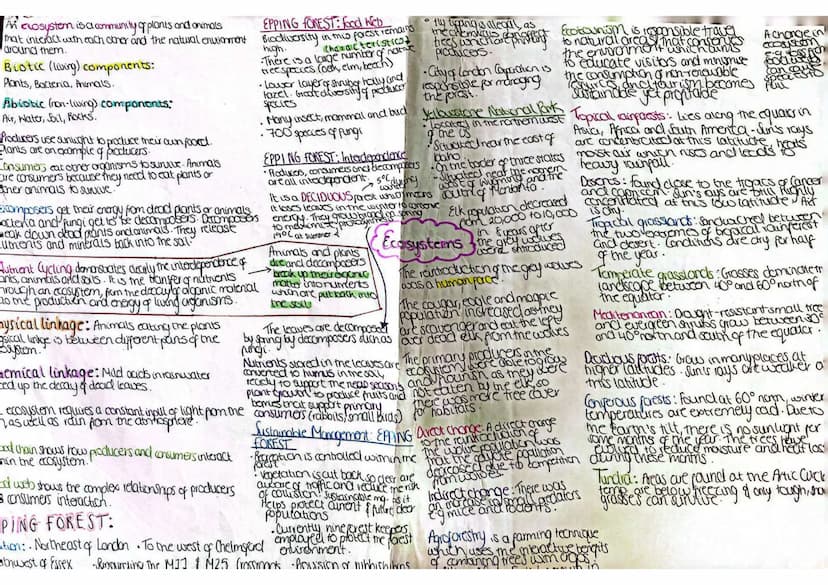 An ecosystem is a community of plants and animals
that interact with each other and the natural environment
around them.
Biotic (living) components:
Plants, Bacteria, Animals.
Abiotic (non-living) components:
Air, Water, Soil, Rocks.
Producers use sunlight to produce their own food.
Plants are an example of producers.
Consumers eat other organisms to survive. Animals
are consumers because they need to eat plants or
other animals to survive.
Decomposers get their energy from dead plants or animals
Bacteria and fungi get to be decomposers. Decomposers
break down dead plants and animals. They release
nutrients and minerals back into the soil.
Nutrient Cycling demonstrates clearly the interdependence of
plants, animals and soils. It is the transfer of nutrients
through an ecosystem, from the decay of organic material
to the production and energy of living organisms.
Physical linkage: Animals eating the plants
physical linkage is between different parts of the
ecosystem.
Chemical linkage: Mild acids in rainwater
speed up the decay of dead leaves.
ecosystem requires a constant input of light from the
as well as rain from the atmosphere.
food chain shows how producers and consumers interact
within the ecosystem.
food web shows the complex relationships of producers
& consumers interaction.
EPPING FOREST:
Location: · Northeast of London · To the west of Chelmsford
· Southwest of Essex
EPPING FOREST: Food Web
Biodiversity in this forest remains
high. Characteristics
· There is a large number of native
tree species (oak, elm, beech)
· Lower layer of shrubs holly and
hazel. Great diversity of producer
species
· Many insect, mammal and bird
· 700 species of fungi
EPPING FOREST: Interdependence
Producers, consumers and decomposers
are all interdependent.
It is a DECIDUOUS forest which means
it loses leaves in the winter
energy. They grow back in spring
to maximise photosynthesis
Animals and plants
die and decomposers
break up their organic
matter into nutrients
which are put back into
the soil.
The leaves are decomposed
by spring by decomposers such as
fungi.
Nutrients stored in the leaves are
converted to humus in the soil,
ready to support the new seasons
plant growth to produce fruits and
berries that support primary
consumers (rabbits/small birds)
Sustainable Management: EPPING
FOREST
· Recreation is controlled within the
forest
· Vegetation is cut back so deer are
aware of traffic and reduce the risk
of collision.
Helps protect current & future deer
populations
· Currently nine forest keepers
employed to protect the forest
environment.
· Fly tipping is illegal, as
the chemicals
trees and
producers.
· City of London Corporation is
responsible for managing
the forest.
Yellowstone National Park
· Located in the northern west
of the US
· Situated near the east of
Idaho
· On the border of three states
situated near the northern
west of Wyoming and the
south of Montana.
Elk population decreased
from 20,000 to 10,000
in 8 years after
the grey wolves
were introduced
Ecosystems
The reintroduction of the grey wolves
was a human factor.
The cougar, eagle and magpie
population increased as they
are scavenger and eat the left
over dead elk from the wolves
The primary producers in the
ecosystem were able to grow
and flourish as they were
not eaten by the elk, so
there was more tree cover
for habitats.
Direct change: A direct change
to the reintroduction of
the wolve population was
that the coyote population
decreased due to competition
from wolves
Indirect change: There was
an increase in small predators
eg mice and rodents.
Agroforestry is a farming technique
which uses the interactive benefits
of combining trees with crops
Ecotourism is responsible travel
to natural areas that conserves
the environment which aims
to educate visitors and minimise
the consumption of non-renewable
resources. Ensures tourism becomes
sustainable yet profitable
A change in
ecosystem
Tropical rainforests: Lies along the equator in
Asia, Africa and South America · Sun's rays
are concentrated at this latitude, heats
moist air which rises and leads to
heavy rainfall.
Deserts: Found close to the tropics of Cancer
and Capricorn. Sun's rays are still highly
concentrated at this low latitude. Air
is dry.
Tropical grasslands: Sandwiched between
the two extremes of tropical rainforest
and desert. Conditions are dry for half
of the year.
Temperate grasslands: Grasses dominate the
landscape between 40° and 60° north of
the equator.
Mediterranean: Drought-resistant small trees
and evergreen shrubs grow between 30°
and 40° north and south of the equator.
Deciduous forests: Grow in many places at
higher latitudes. Sun's rays are weaker at
this latitude.
Coniferous forests: Found at 60° north, winter
temperatures are extremely cold. Due to
the Earth's tilt, there is no sunlight for
some months of the year. The trees have
evolved to reduce moisture and heat loss
during these months.
Tundra: Areas are found at the Artic Circle
temp are below freezing & only tough, short
grasses can survive.